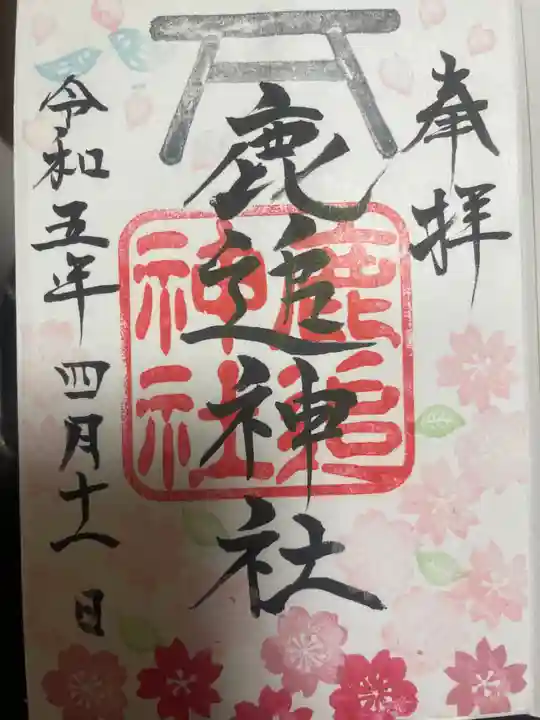 奉拝
鹿追神社
鹿追
神社
令和五年四月十一日